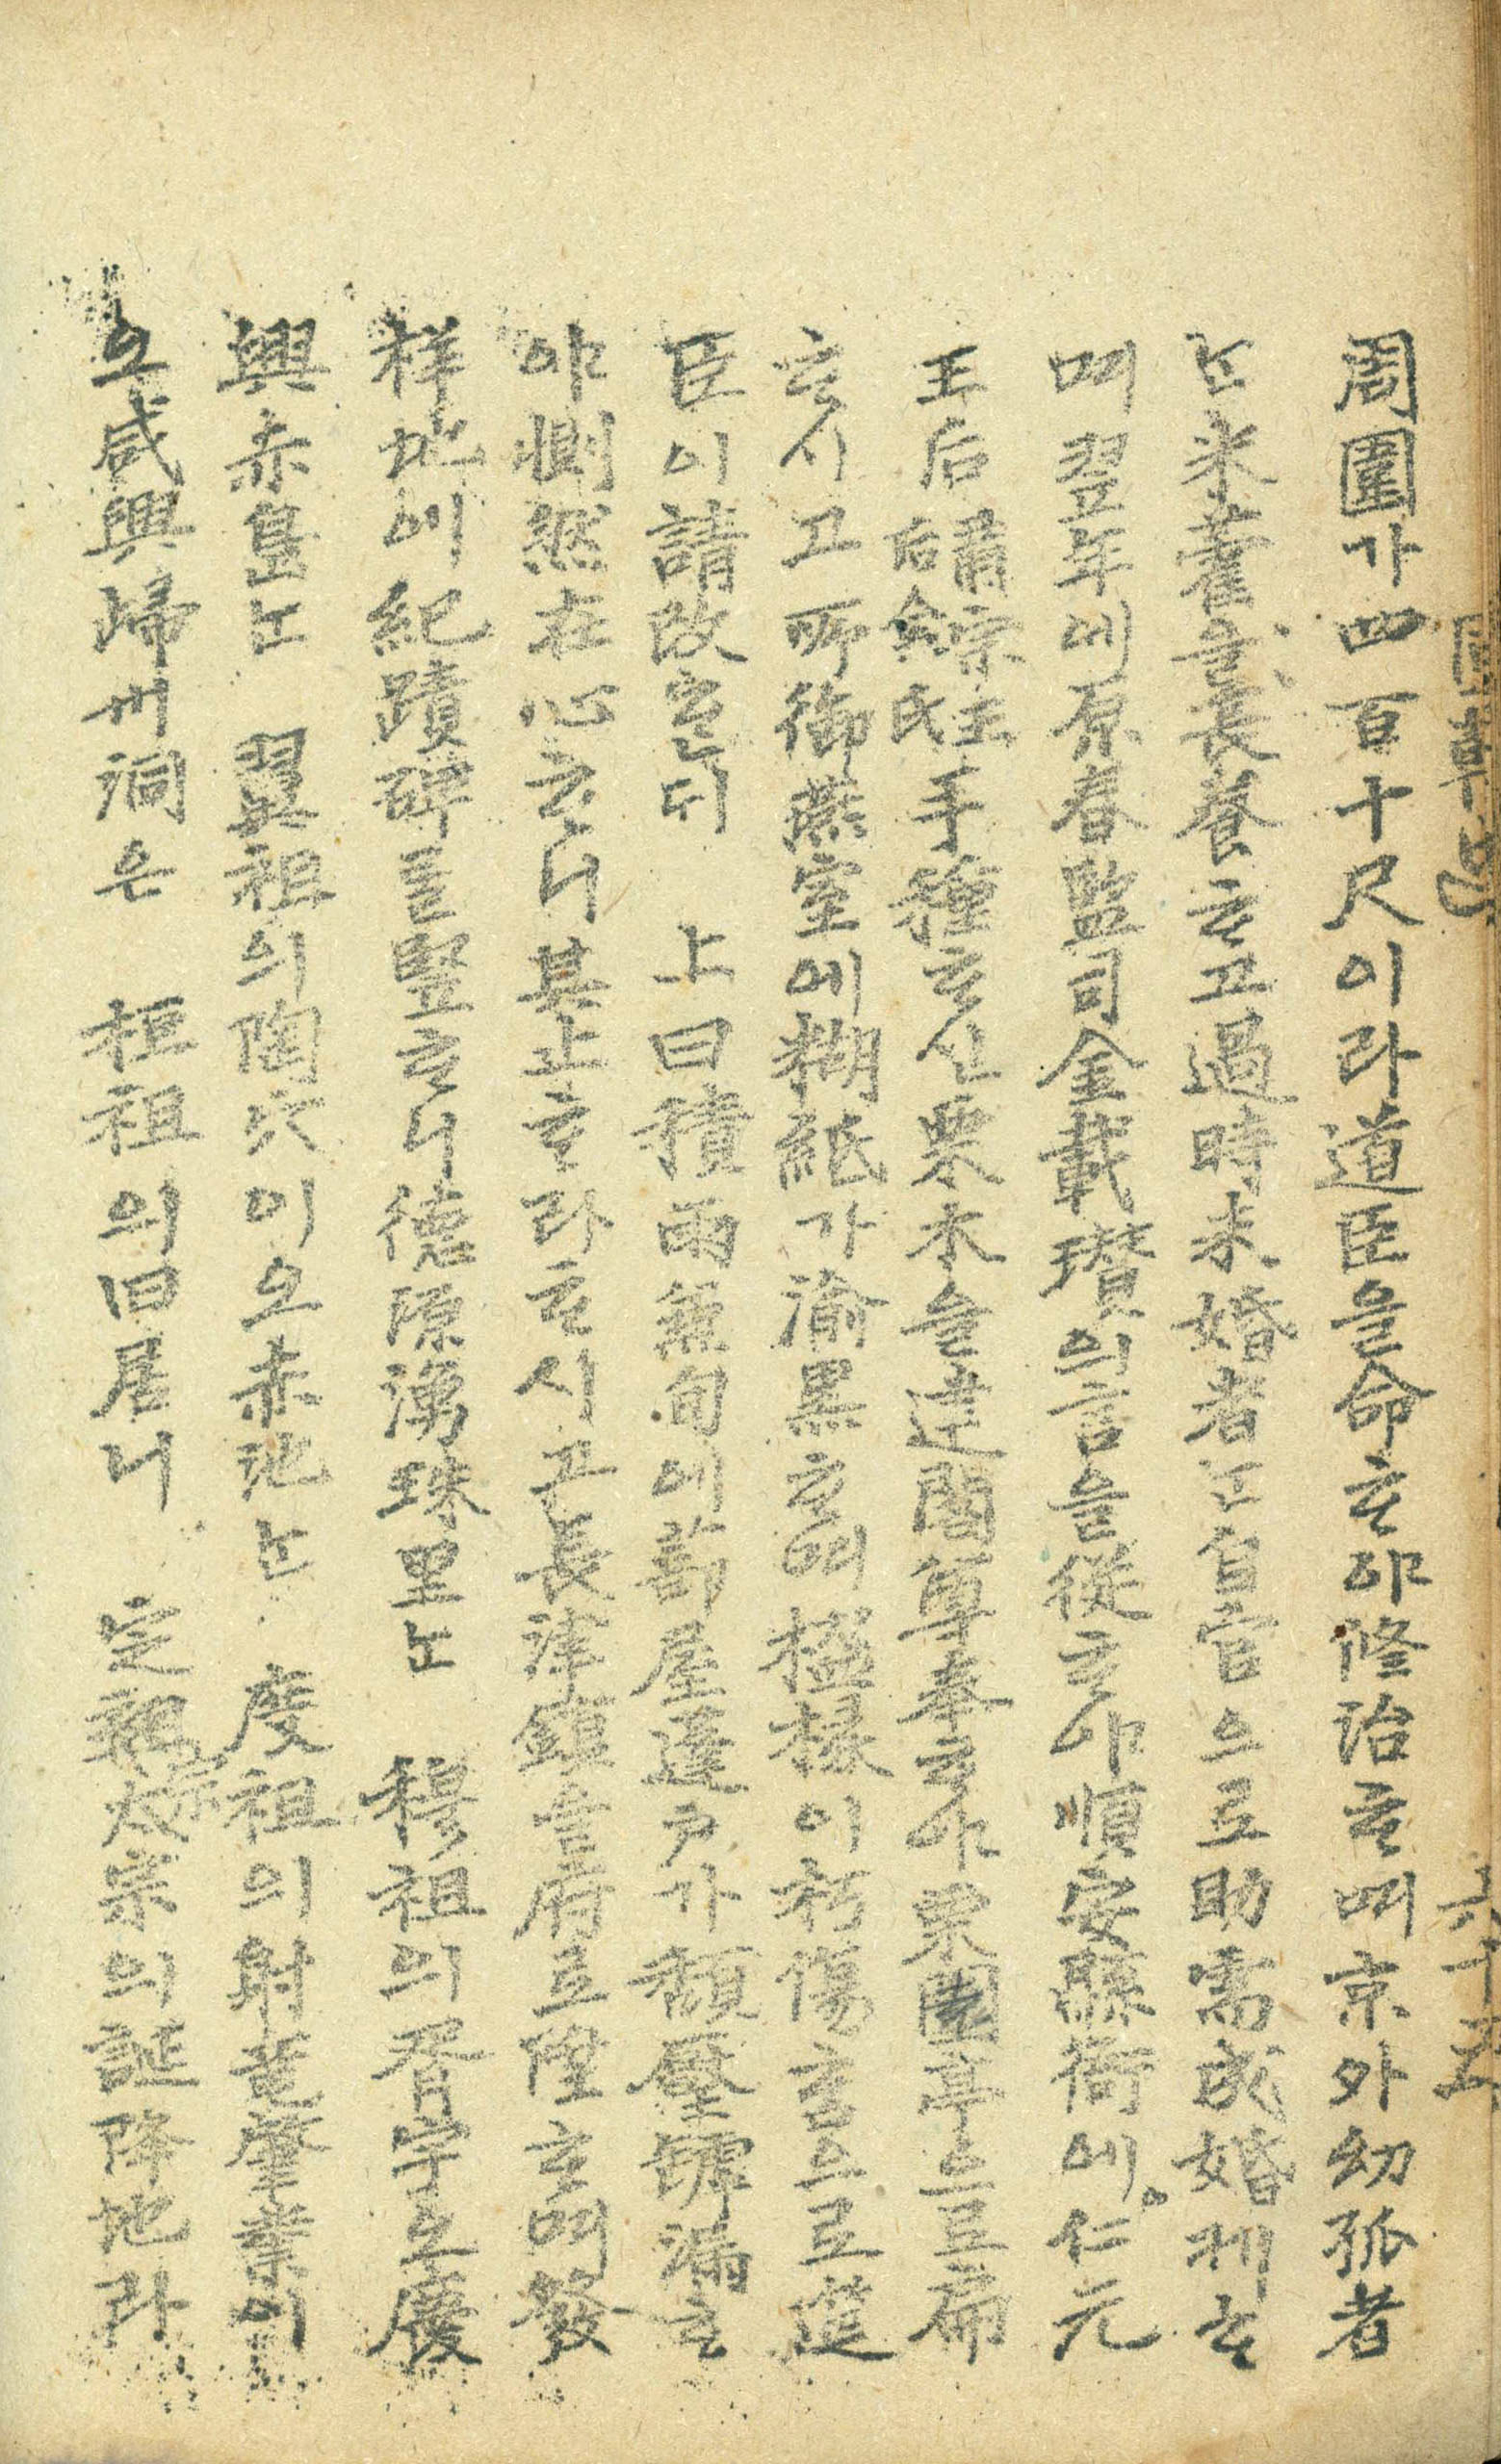 周圍가四百十尺이라道臣을命ᄒᆞ야修治ᄒᆞ며京外幼孤者
ᄂᆞᆫ米藿으로長養ᄒᆞ고過時未婚者ᄂᆞᆫ自官으로助需成婚케ᄒᆞ
며翌年에原春監司金載瓚의言을從ᄒᆞ야順安縣衙에仁元
王后肅宗主后金氏手種ᄒᆞ신栗木을建閣尊奉ᄒᆞ야栗園亭으로扁
ᄒᆞ시고所御燕室에糊紙가渝黑ᄒᆞ며楹椽이朽傷ᄒᆞᆷ으로筵
臣이請改ᄒᆞᆫᄃᆡ 上曰積雨無旬에蔀屋蓬戶가頹壓罅漏ᄒᆞ
야惻然在心ᄒᆞ니其止ᄒᆞ라ᄒᆞ시고長津鎭을府로陞ᄒᆞ며發
祥地에紀蹟碑를竪ᄒᆞ니德源湧珠里ᄂᆞᆫ 穆祖의胥宇오慶
興赤島ᄂᆞᆫ 翼祖의陶穴이오赤池ᄂᆞᆫ 度祖의射龍肇業이
오咸興歸州洞은 桓祖의旧居니 定宗太宗의誕降地라
六十五